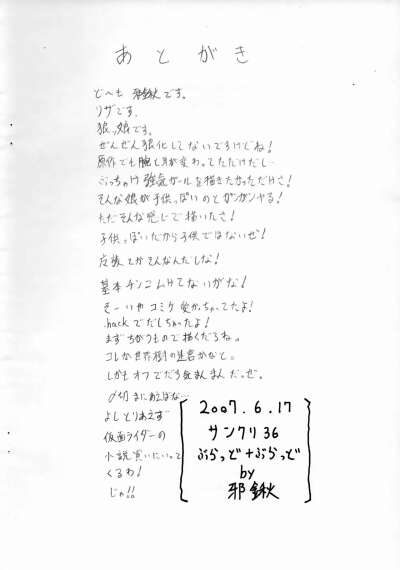 あとがき
ど〜も 邪鍬です。
リザです。
狼っ娘です。
ぜんぜん狼化してないですけどね!
原作でも腕と耳が変わってただけだし…
ぶっちゃけ強気ガールを描きたかっただけさ!
そんな娘が子供っぽいのとガンガンヤる!
ただそんな感じで描いたさ!
子供っぽいだから子供ではないぜ!
反後とかそんなんだしな!
基本チンコムけてないがな!
そーいやコミケ受かっちゃってたよ!
.hackでだしちゃったよ!
まずちがうもので描くだろね。
コレか世界樹の迷宮かなと。
しかもオフでだす気まんまんだっぜ。
〆切まにあえばな…
よしとりあえず
仮面ライダーの
小説買いにいって
くるわ!
じゃ!!
2007.6.17
サンクリ36
ぶらっど+ぶらっど
by
邪鍬